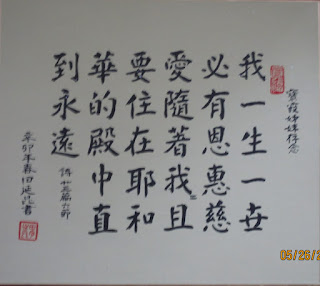 寶霞姊妹存念
我一生一世
必有恩惠慈
愛隨著我且
要住在耶和
華的殿中直
到永遠
詩廿三篇六節
辛卯年春田書
05/26/2